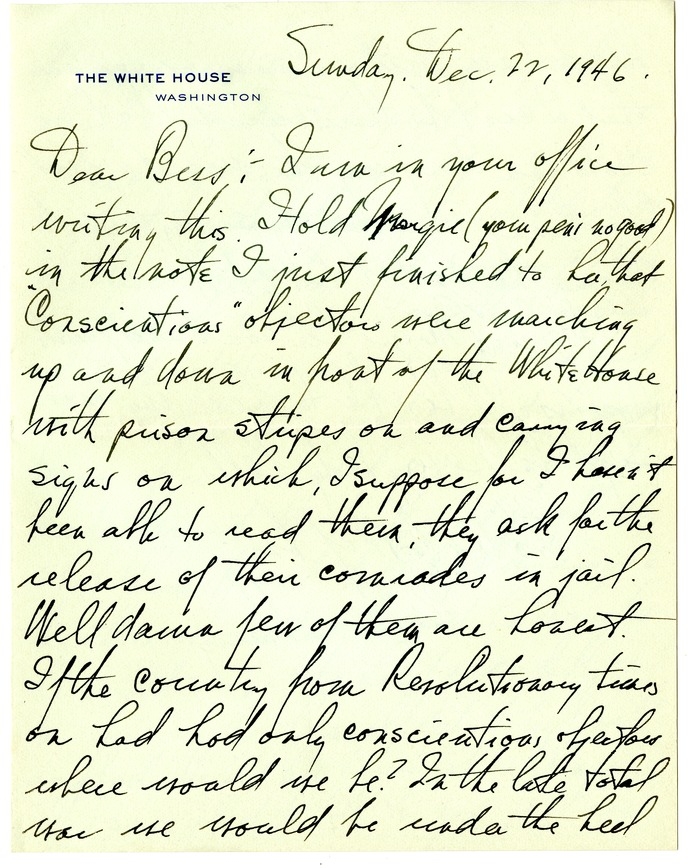 THE WHITE HOUSE
WASHINGTON
Sunday. Dec. 22, 1946.
Dear Bess:- I am in your office
writing this. I told Margie (your pen's no good)
in the note I just finished to her, that
"Conscientious" objectors were marching
up and down in front of the White House
with prison stripes on and carrying
signs on which, I suppose for I haven't
been able to read them, they ask for the
release of their comrades in jail.
Well damn few of them are honest.
If the country from Revolutionary times
on had had only conscientious objectors
where would we be? In the late total
war we would be under the heel